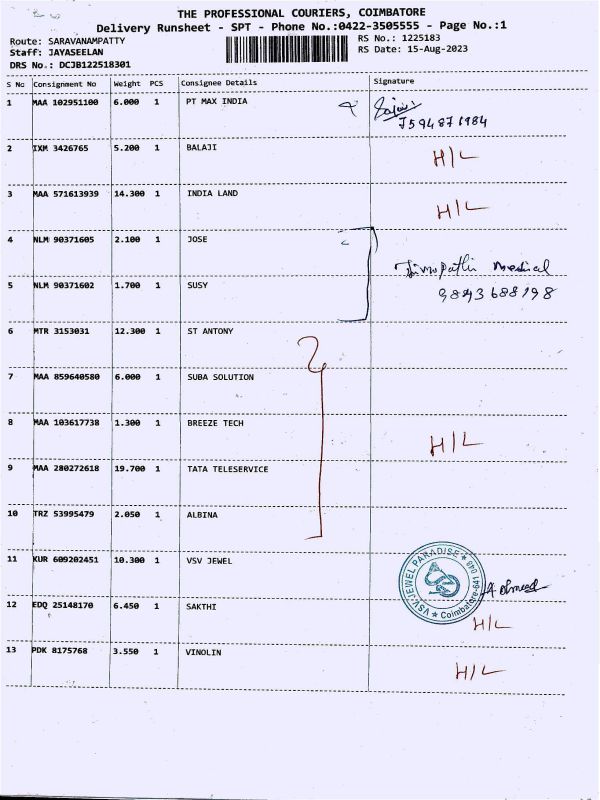 THE PROFESSIONAL COURIERS, COIMBATORE
Delivery Runsheet - SPT - Phone No.:0422-3505555 - Page No.:1
Route: SARAVANAMPATTY
RS No.: 1225183
Staff: JAYASEELAN
RS Date: 15-Aug-2023
DRS No.: DCJB122518301
S No Consignment No Weight PCS Consignee Details Signature
1 MAA 102951100 6.000 1 PT MAX INDIA
7594871984
2 IXM 3426765 5.200 1 BALAJI H/L
3 MAA 571613939 14.300 1 INDIA LAND H/L
4 NLM 90371605 2.100 1 JOSE
Medical
5 NLM 90371602 1.700 1 SUSY 9843688198
6 MTR 3153031 12.300 1 ST ANTONY
7 MAA 859640580 6.000 1 SUBA SOLUTION
8 MAA 103617738 1.300 1 BREEZE TECH H/L
9 MAA 280272618 19.700 1 TATA TELESERVICE
10 TRZ 53995479 2.050 1 ALBINA
11 KUR 609202451 10.300 1 VSV JEWEL
VSV JEWEL PARADISE * Coimbatore-641 049 *
12 EDQ 25148170 6.450 1 SAKTHI H/L
13 PDK 8175768 3.550 1 VINOLIN H/L